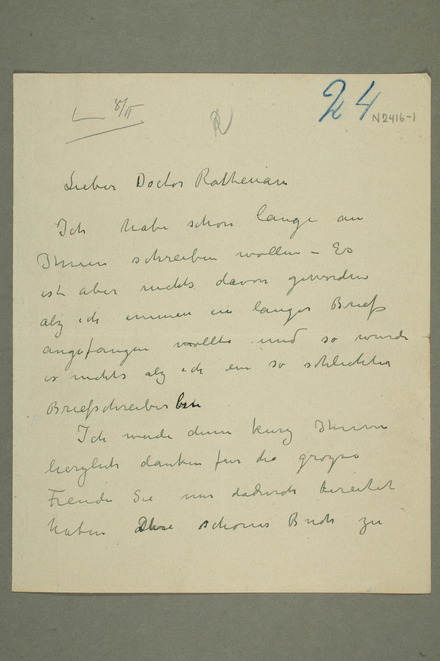 L 8/II
24
N2416-1
Lieber Doctor Rathenau
Ich habe schon lange an
Ihnen schreiben wollen – Es
ist aber nichts davon geworden
alz ich immer ein langes Brief
angefangen wollte und so wurde
es nichts alz ich ein so schlechter
Briefschreiber bin
Ich werde dann kurz Ihnen
herzlich danken für die groze
Freude Sie uns dadurch bereitet
haben Ihre schönes Buch zu